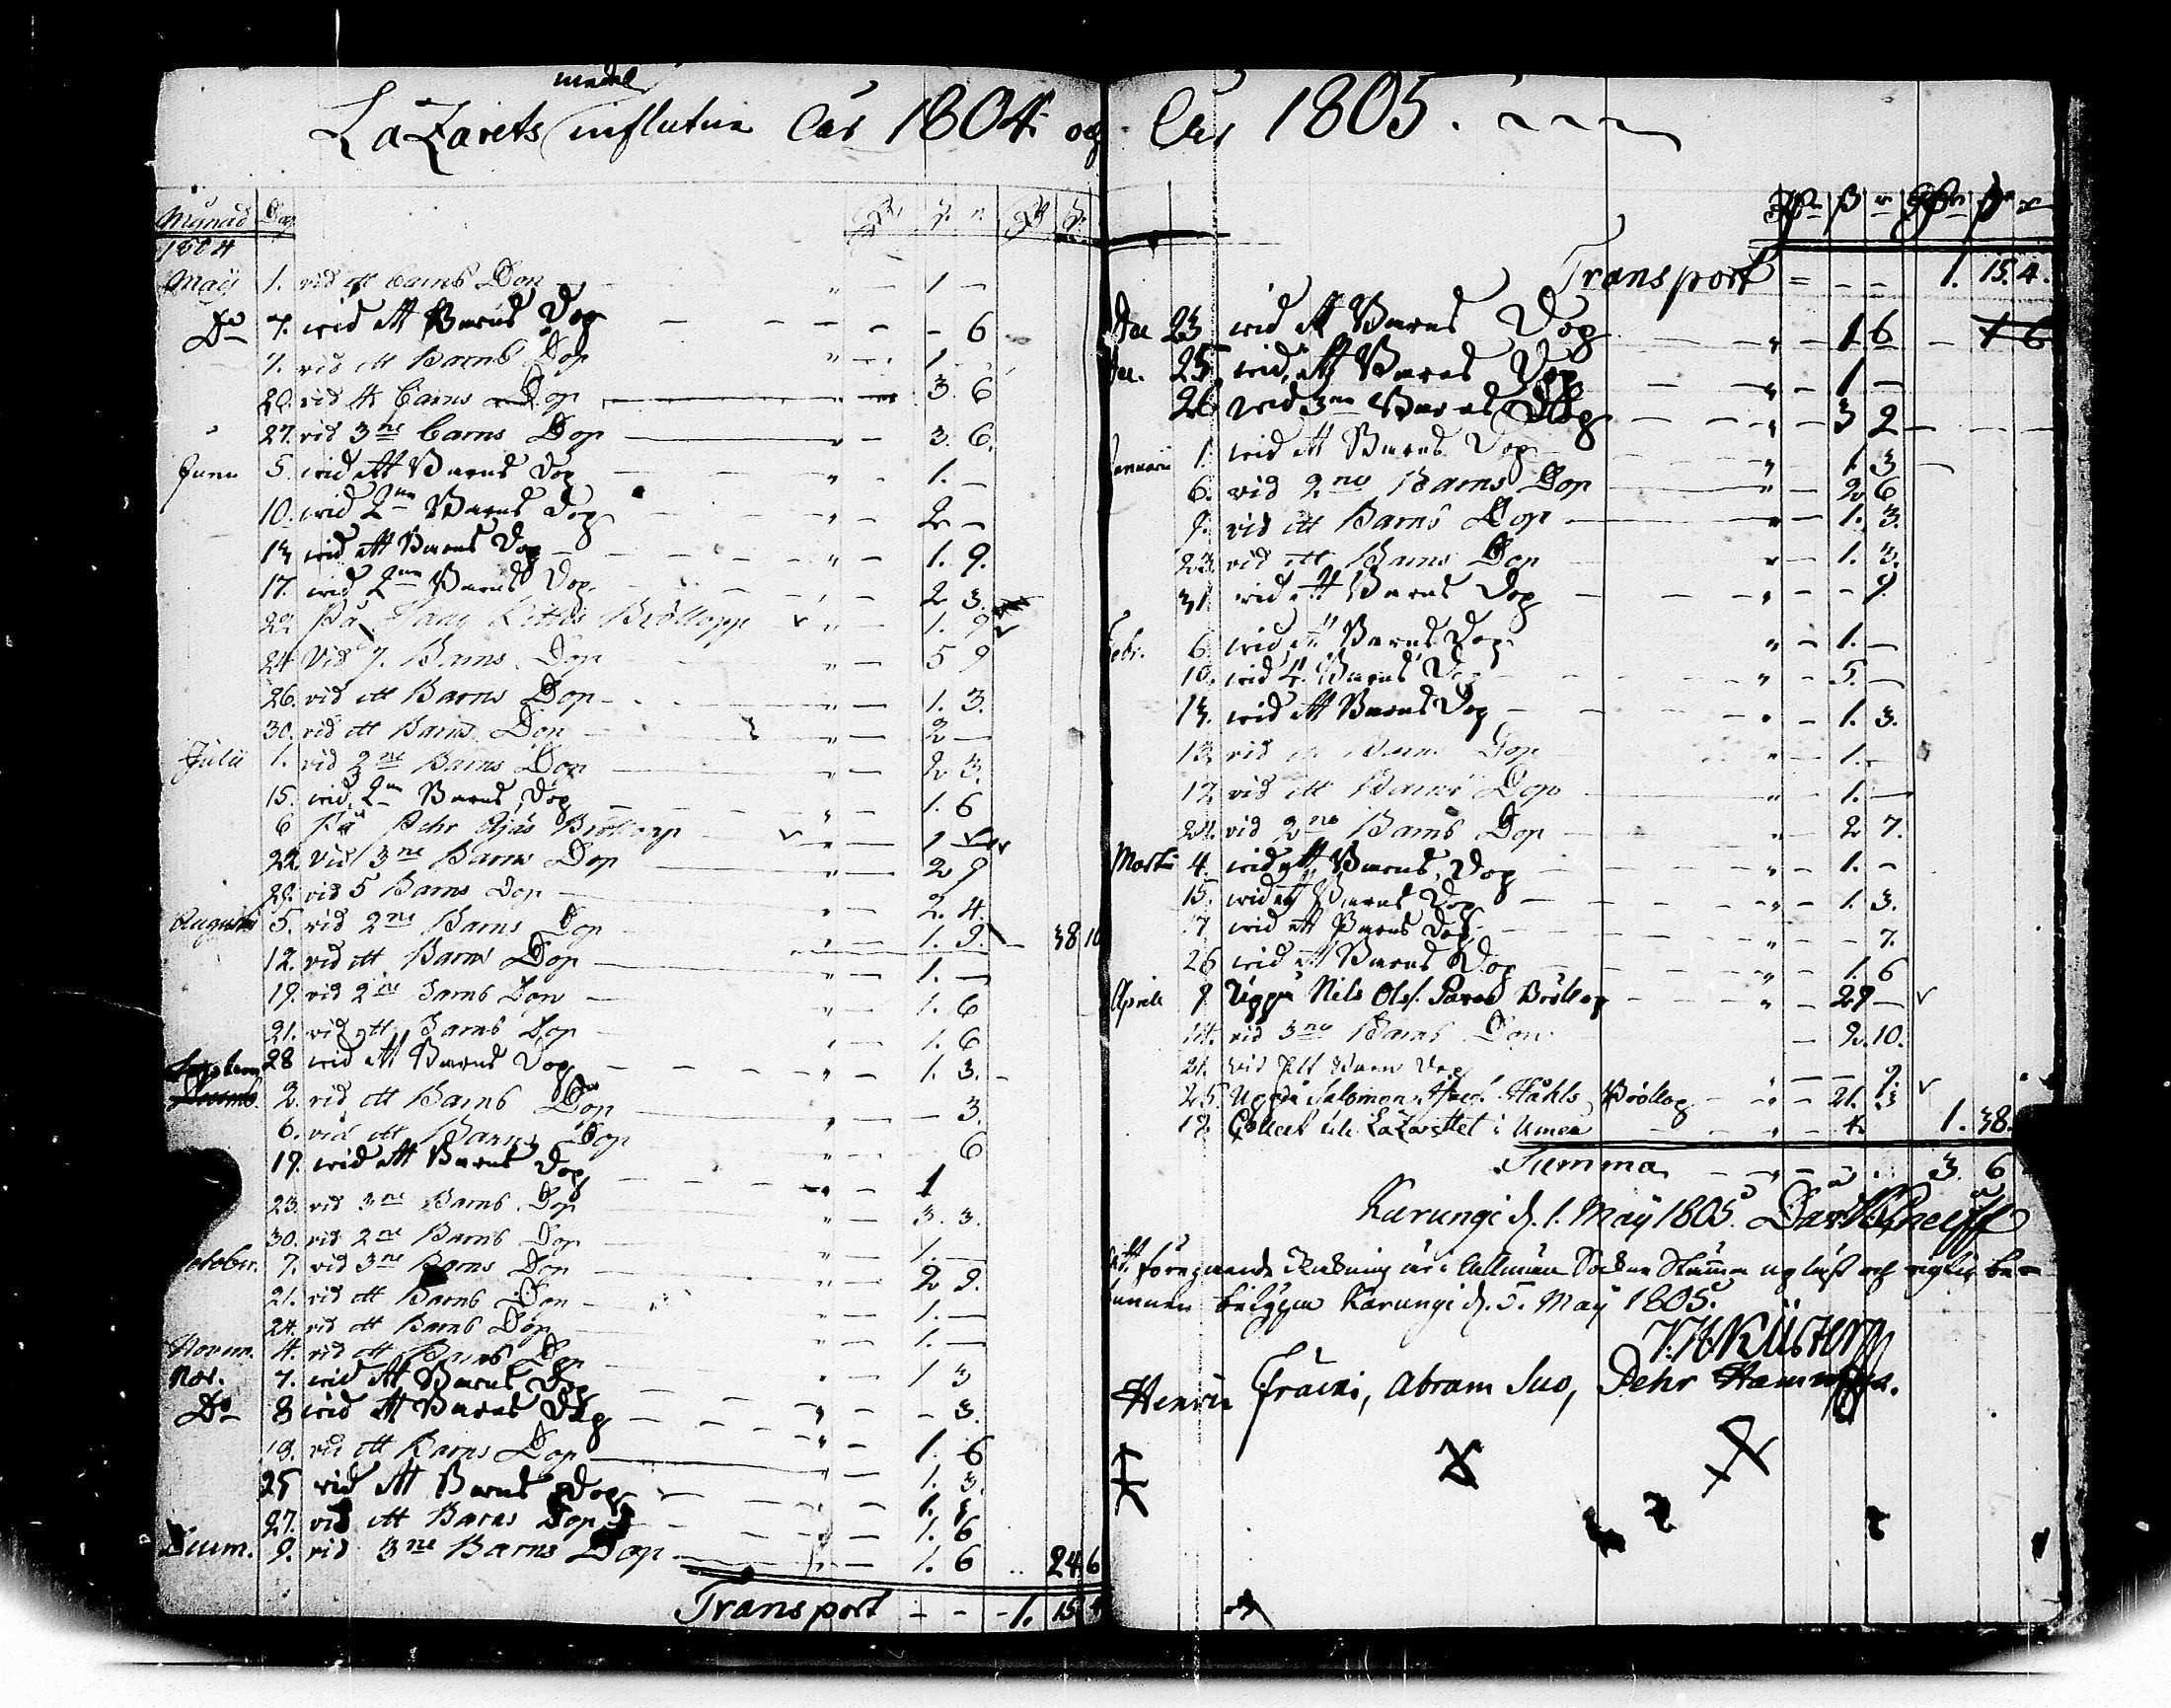 medel
LaZarets influtne Åar 1804 og Åar 1805.
Månad Dag
1804
Maij 1. vid ett barns Dop " — 1 —
Do 7. wid ett Barns Dop — — 6
7. vid ett Barns Dop " — 1 —
20. vid 4 barns Dop " — 3 6
27. vid 3ne barns Dop " — 3. 6.
Junii 5. wid ett Barns Dop " — 1. —
10. wid 2ne Barns Dop " — 2 —
13 wid ett Barns Dop " — 1. 9.
17. wid 2ne Barns Dop " — 2 3.
22 På Bröllopp " — 1. 9
24 Vid 7. Barns Dop " — 5 9
26. vid ett Barns Dop " — 1. 3.
30. vid ett Barns Dop " — 2 —
Julii 1. vid 2ne Barns Dop " — 2 3.
15. wid 2ne Barns Dop " — 1. 6
6 På Pehr Bröllopp " — 1
22. Vid 3ne Barns Dop " — 2 9
29. vid 5 Barns Dop " — 2. 4.
Augusti 5. vid 2ne Barns Dop " — 1. 9. — 38 10
12. vid ett Barns Dop " — 1. —
19. vid 2ne Barns Dop " — 1. 6
21. vid ett Barns Dop " — 1. 6
28 wid ett Barns Dop " — 1. 3.
Septem 2. vid ett Barns Dop " — — 3.
6. vid ett Barns Dop " — — 6
19. wid ett Barns Dop " — 1
23. vid 3ne Barns Dop " — 3. 3.
30. vid 2ne Barns Dop " — 1. —
October. 7. vid 3ne Barns Dop " — 2 9.
21. vid ett Barns Dop " — 1. —
24. vid ett Barns Dop " — 1. —
Novem. 4. vid ett Barns Dop " — 1 3
Nov. 7. wid ett Barns Dop — — 3.
Do 8 wid ett Barns Dop " — 1. 6
19. vid ett Barns Dop " — 1. 3.
25 wid ett Barns Dop — 1.
27. vid ett Barns Dop " — 1. 6
Decem. 9. vid 3ne Barns Dop " — 1. 6 .. 24 6
Transport — — 1. 15 4
Transport = — — 1. 15. 4.
Dec 23 wid ett Barns Dop " — 1 6 — 1 6
Dec. 25 wid ett Barns Dop " — 1 —
26 wid 3ne Barns Dop " — 3 2
Januarii 1. wid ett Barns Dop " — 1 3
6. vid 2ne Barns Dop " — 2 6
9. vid ett Barns Dop " — 1. 3.
23. vid ett Barns Dop " — 1. 3.
31 wid ett Barns Dop " — — 9.
Febr. 6. wid ett Barns Dop " — 1. —
10. wid 4. Barns Dop " — 5. —
13. wid ett Barns Dop " — 1. 3.
13. vid ett Barns Dop " — 1. —
17. vid ett Barns Dop " — 1. —
24. vid 2ne Barns Dop " — 2 7.
Martii 4. wid ett Barns Dop " — 1. —
15. wid ett Barns Dop " — 1. 3.
17 wid ett Barns Dop " — — 7.
26 wid ett Barns Dop " — 1. 6
Aprill 9. Uppå Nils Olss. Bröllop " — 29 —
14. vid 3ne Barns Dop — 2. 10.
21. wid Ett Barn Dop " — — 9.
25. Uppå Salomon Ståhls Bröllop " — 21. 3
12. Collect till LaZarettet i Umeå " — 4. 1. 38.
Summa — " — 3. 6
Karungi d. 1. Maij 1805.
Att föregående Räkning är i Allmän Sockne Stämma upläst och rigtig be=
funnen betygar Karungi d. 5. Maij 1805.
Henric Fräcki, Abram Suo, Pehr